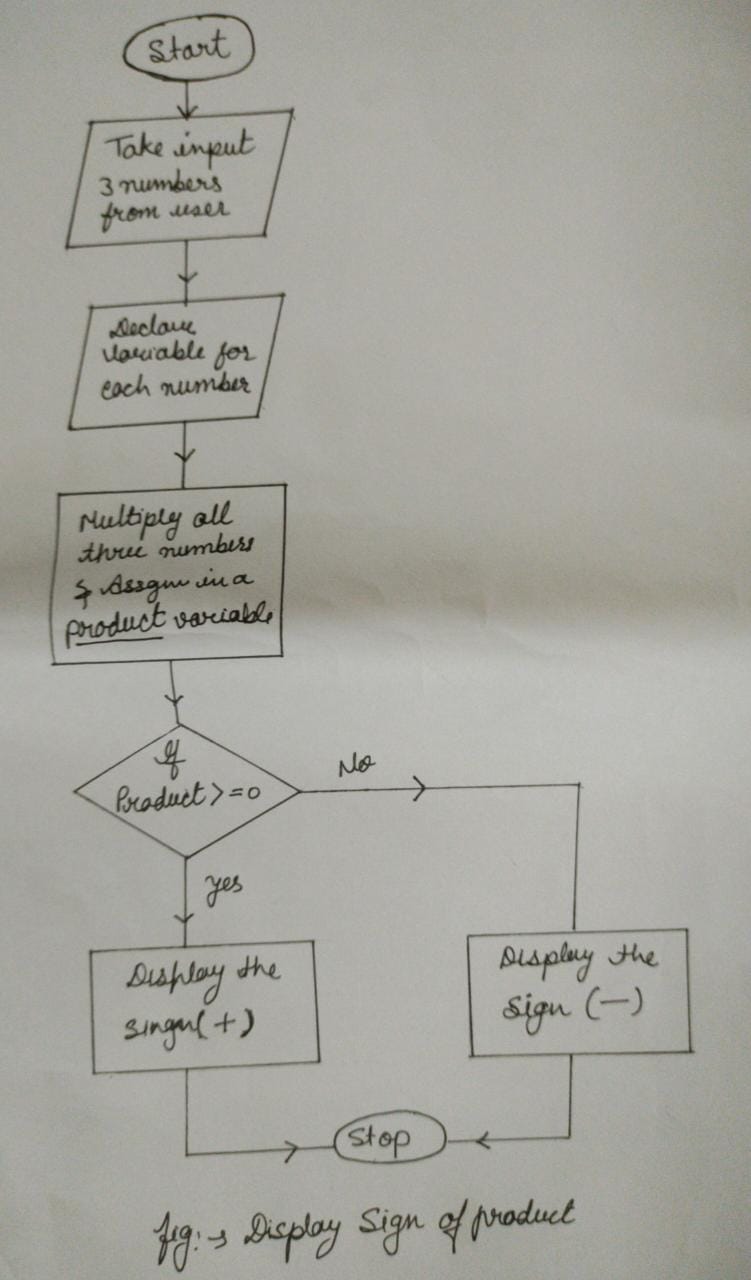 Start
Take input
3 numbers
from user
Declare
Variable for
each number
Multiply all
three numbers
& Assgn in a
product variable
If
Product >= 0
No
yes
Display the
singn (+)
Display the
Sign (—)
Stop
fig:→ Display Sign of product